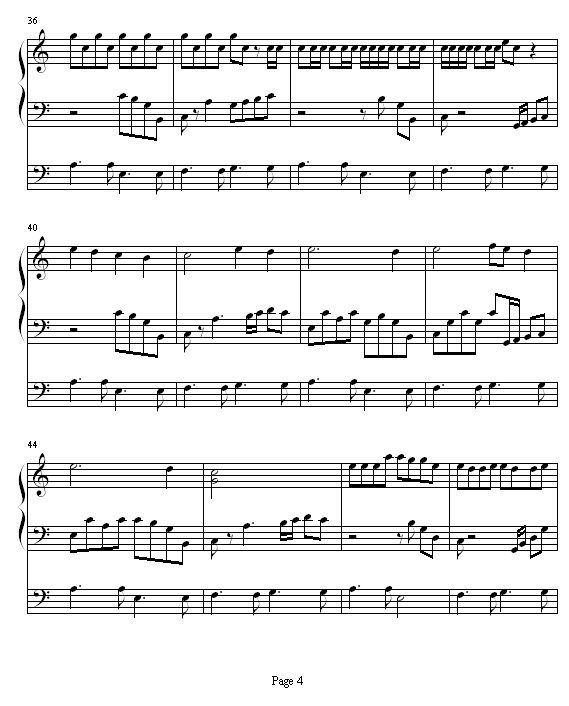 36
40
44
Page 4